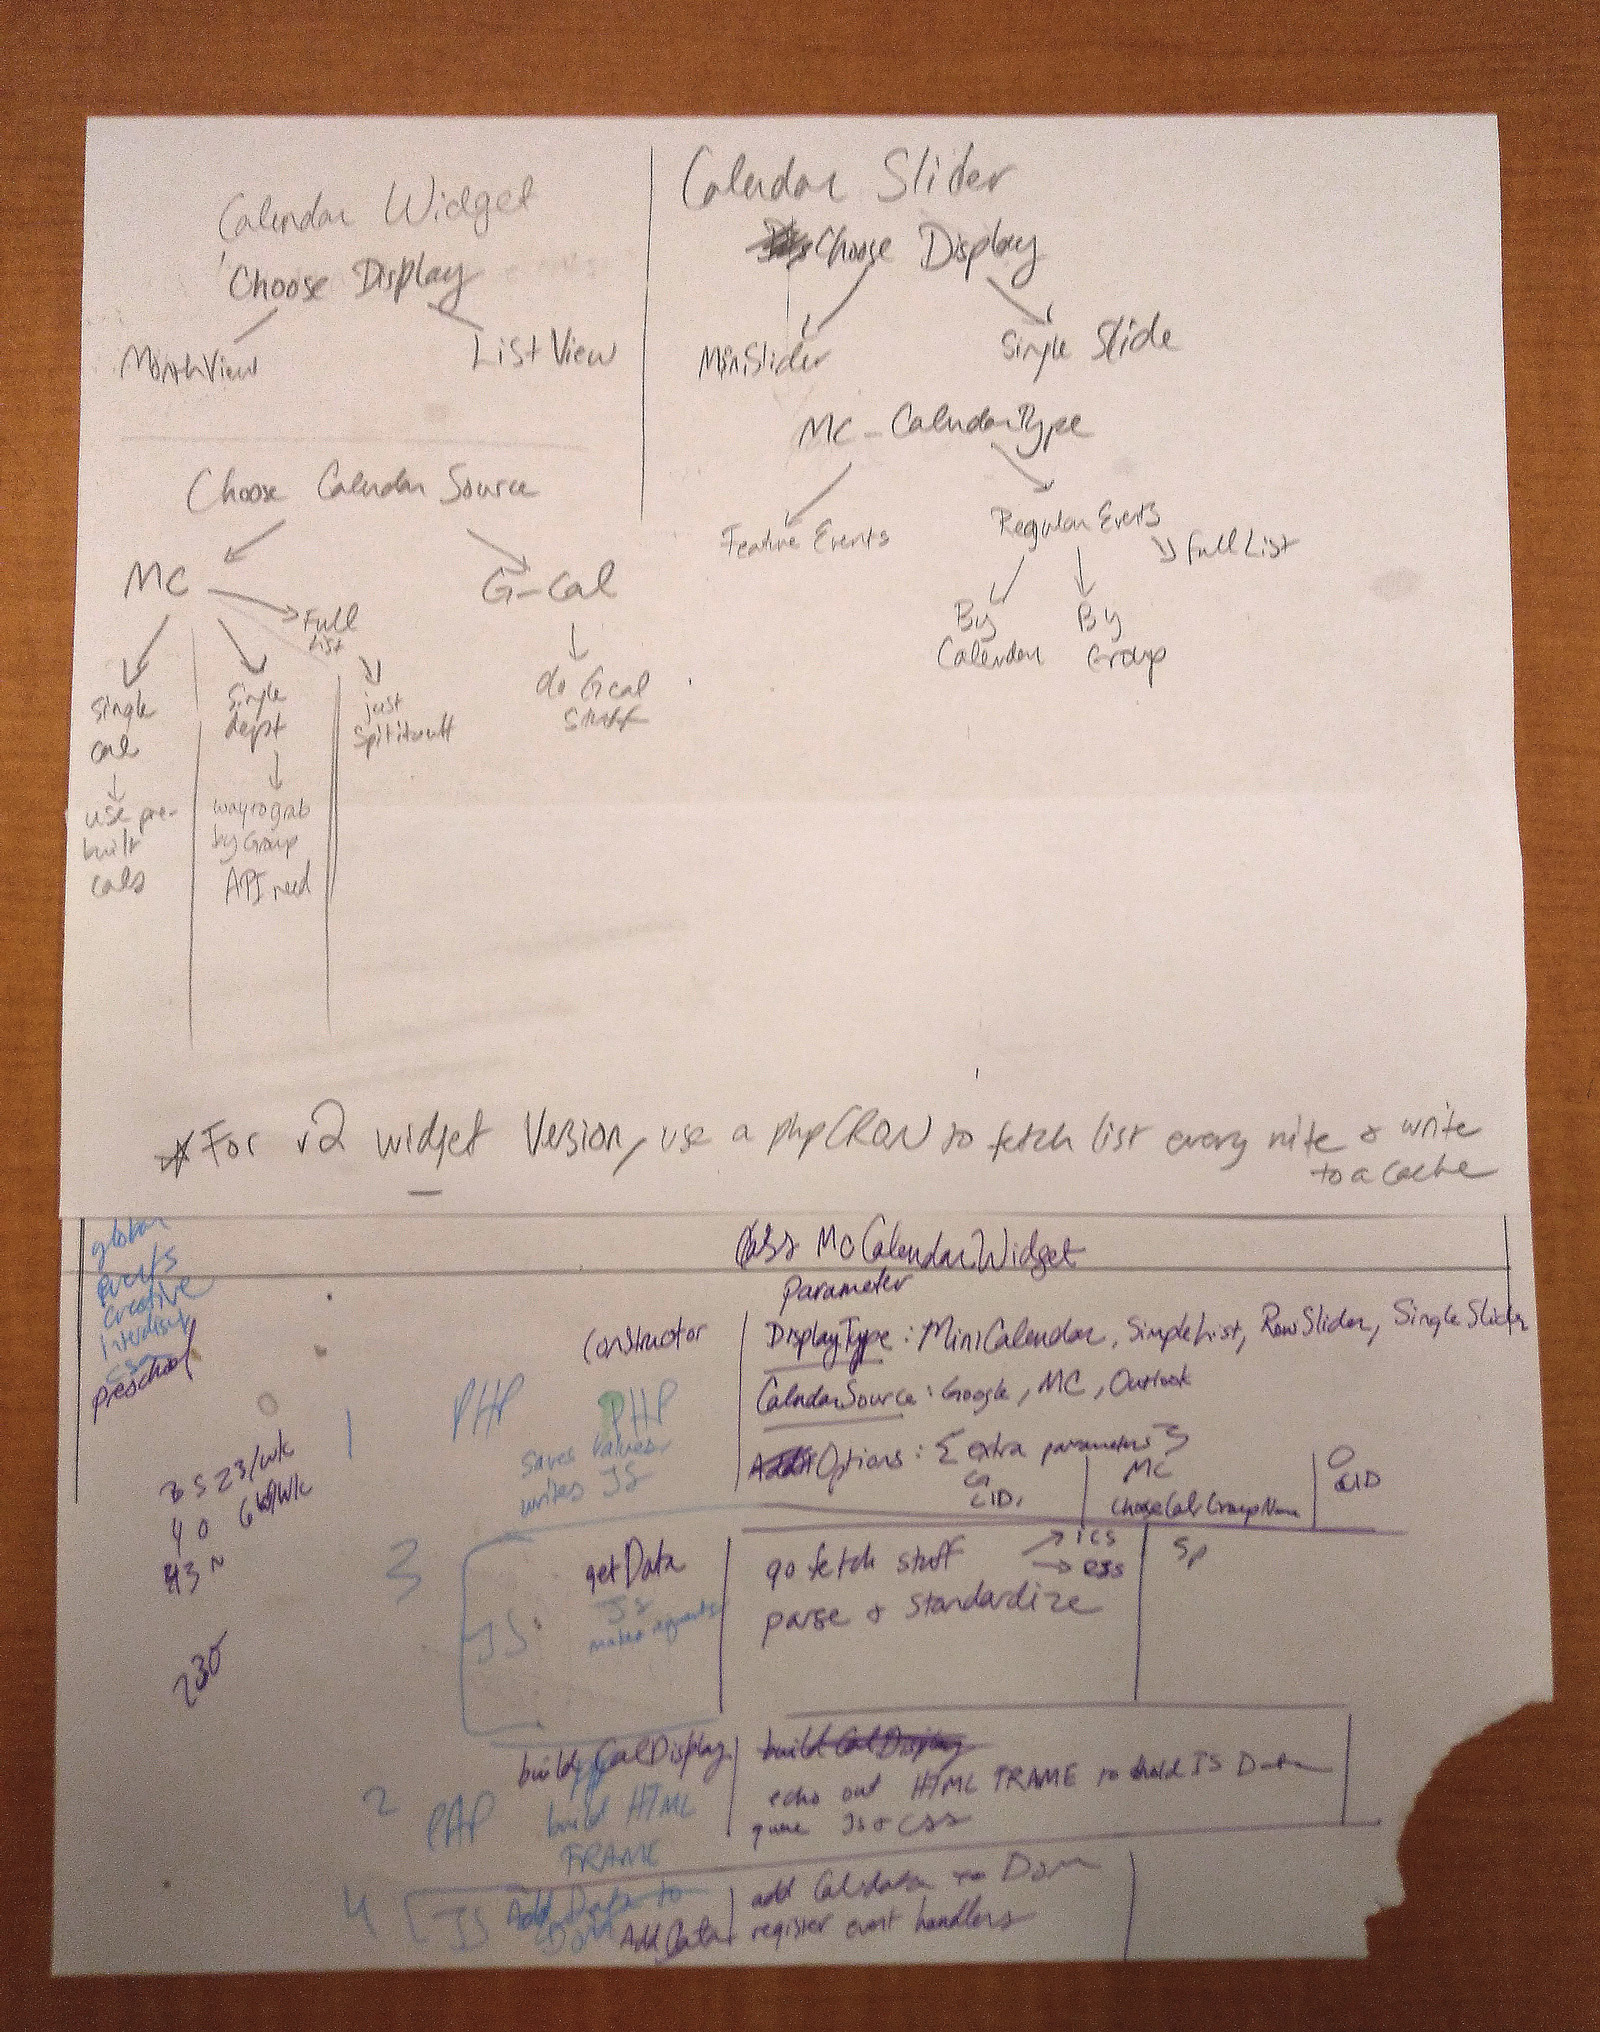 Calendar Widget
Choose Display
MonthView
List View
Choose Calendar Source
MC
G-Cal
Full
List
single
cal
use pre-
built
cals
single
dept
way to grab
by Group
API need
just
spit it out
do Gcal
stuff
Calendar Slider
Choose Display
MiniSlider
Single Slide
MC - CalendarType
Feature Events
Regular Events
Full List
By
Calendar
By
Group
*For v2 widget Version, use a php CRON to fetch list every nite & write
to a cache
global
events
Creative
preschool
Class McCalendarWidget
Parameter
constructor
DisplayType: MiniCalendar, SimpleList, RowSlider, SingleSlider
CalendarSource: Google, MC, Outlook
Options: { extra parameters }
G
CID,
MC
O
CID
1
PHP
PHP
saves values
writes JS
3
JS
getData
JS
makes requests
go fetch stuff → ICS
→ RSS
parse & standardize
SP
235
2
PHP
build CalDisplay
build HTML
FRAME
build CalDisplay
echo out HTML FRAME to hold JS Data
queue JS & CSS
4
JS
Add Data to
DOM
Add Data
add Cal data to Dom
register event handlers